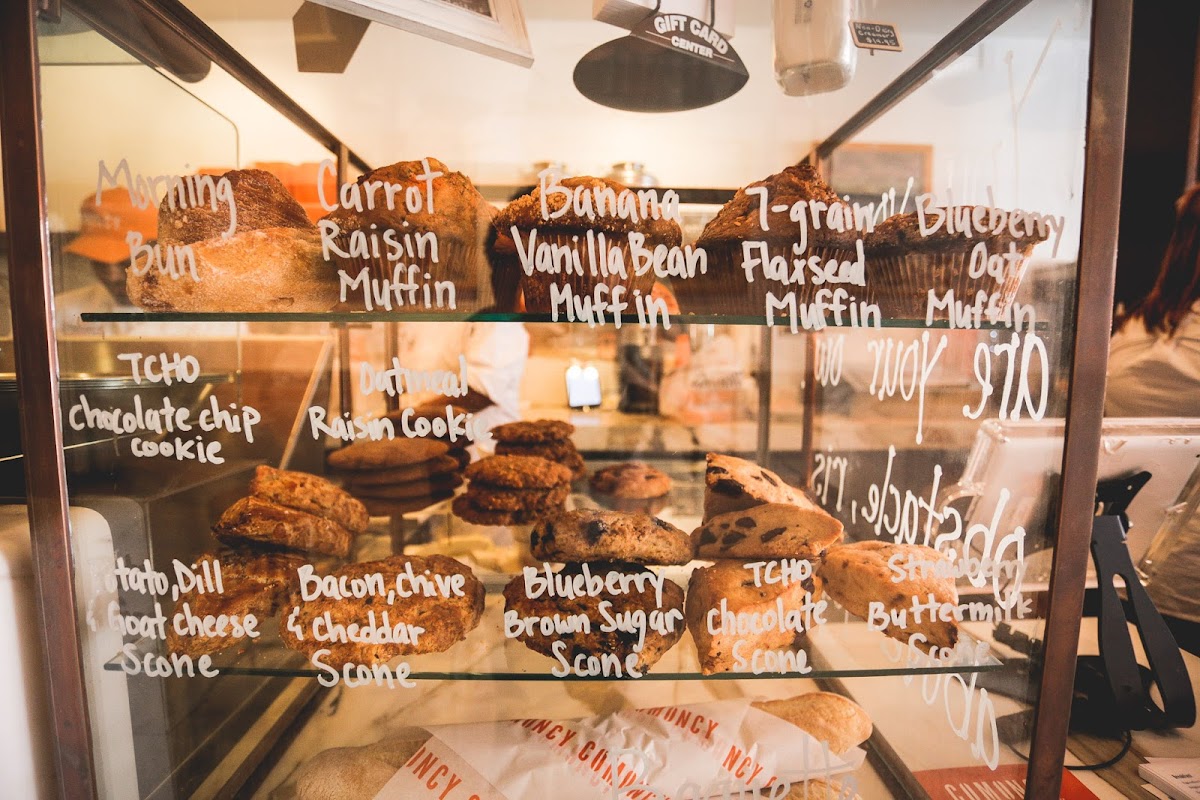 GIFT CARD
CENTER
Morning
Bun
Carrot
Raisin
Muffin
Banana
Vanilla Bean
Muffin
7-grain
Flaxseed
Muffin
Blueberry
Oat
Muffin
TCHO
chocolate chip
cookie
Oatmeal
Raisin Cookie
Potato, Dill
& Goat cheese
Scone
Bacon, chive
& cheddar
Scone
Blueberry
Brown Sugar
Scone
TCHO
chocolate
Scone
Strawberry
Buttermilk
Scone
are your
obstacle,
COMONCY